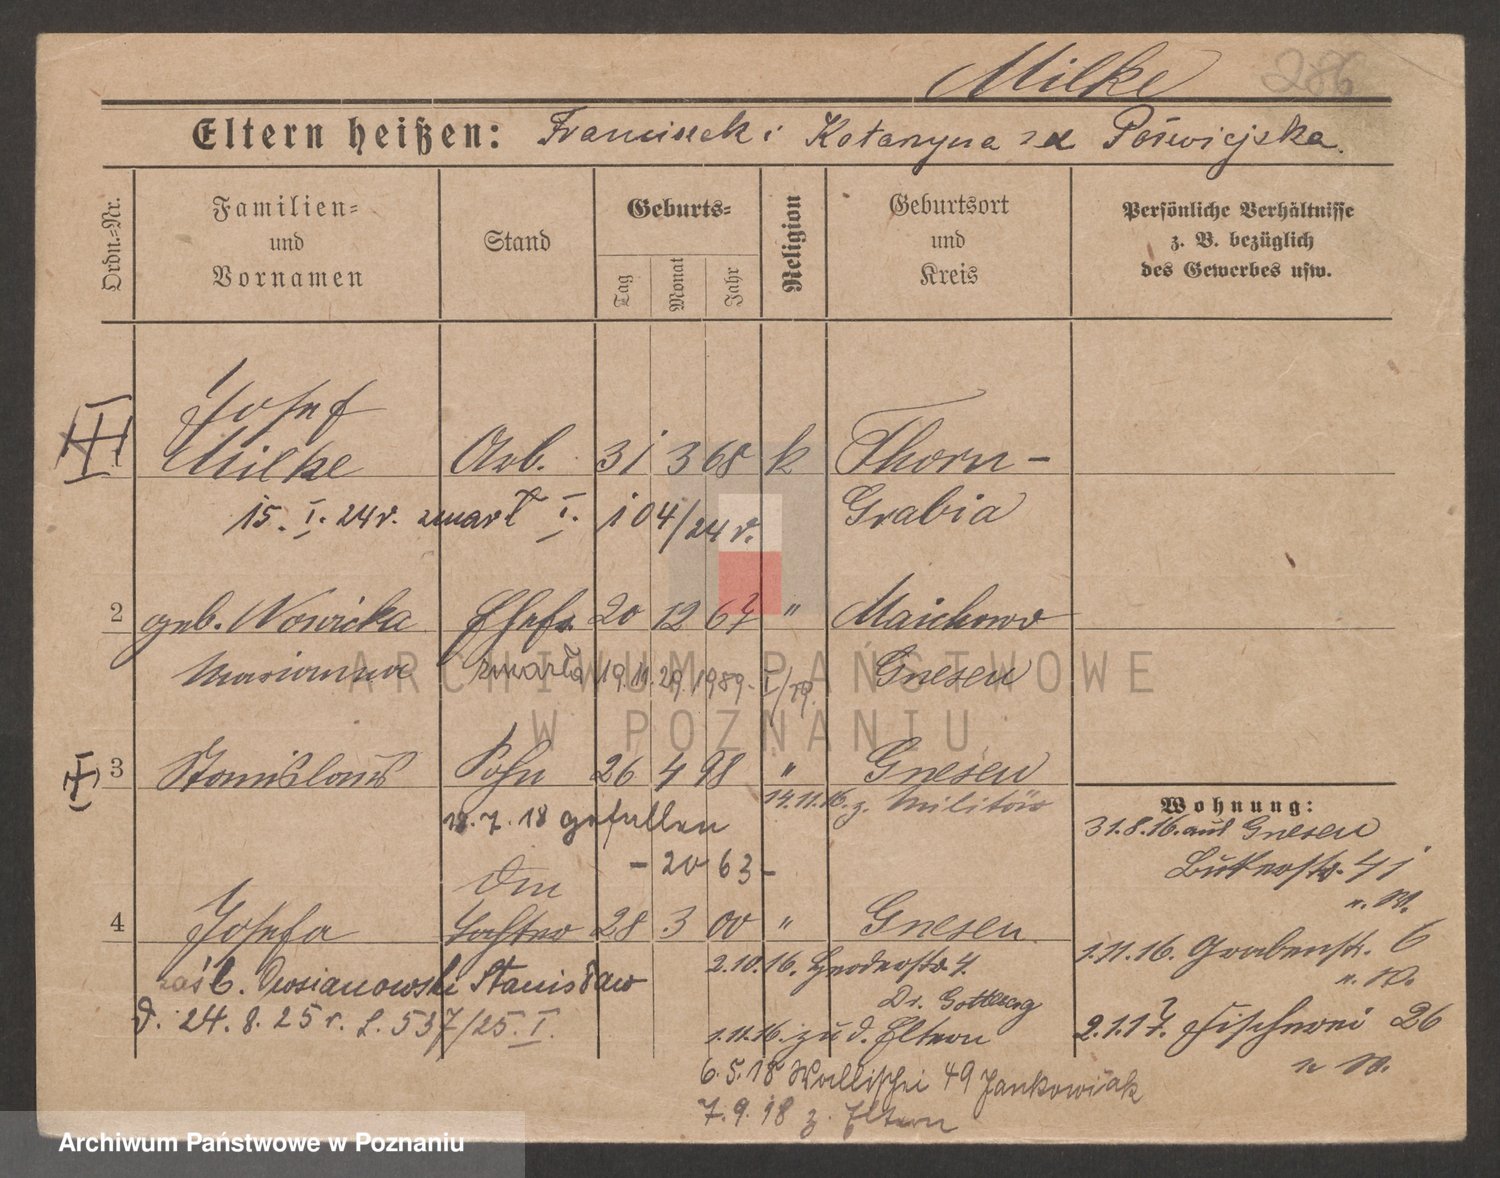 Milke 286
Eltern heißen: Franciszek i Katarzyna zd
Ordn.=Nr.
Familien=
und
Vornamen
Stand
Geburts=
Tag
Monat
Jahr
Religion
Geburtsort
und
Kreis
Persönliche Verhältnisse
z. B. bezüglich
des Gewerbes usw.
Josef
1 Milke Arb. 31 3 68 k Thorn-
Grabia
15. I. 24 r. zmarł I. 104/24 r.
2 geb. Nowicka Ehefr. 20 12 67 " 
Marianna zmarła 19.11. Gnesen
3 Stanislaus Sohn 26 4 98 " Gnesen
14.11.16. z. Militär
18.7.18 gefallen
- 20 63 -
Wohnung:
31.8.16. aus Gnesen
41
n. W.
4 Josefa Tochter 28 3 00 " Gnesen
1.11.16. Grabenstr. 6
n. W.
2.10.16. 4.
Dr.
zaśl. Stanisław
d. 24. 8. 25 r. L. 537/25. I.
1.11.16. zu d. Eltern
2.1.17. Fischerei 26
n W.
6.5.18 Wallischei 49 Jankowiak
7.9.18 z. Eltern
ARCHIWUM PAŃSTWOWE
W POZNANIU
Archiwum Państwowe w Poznaniu